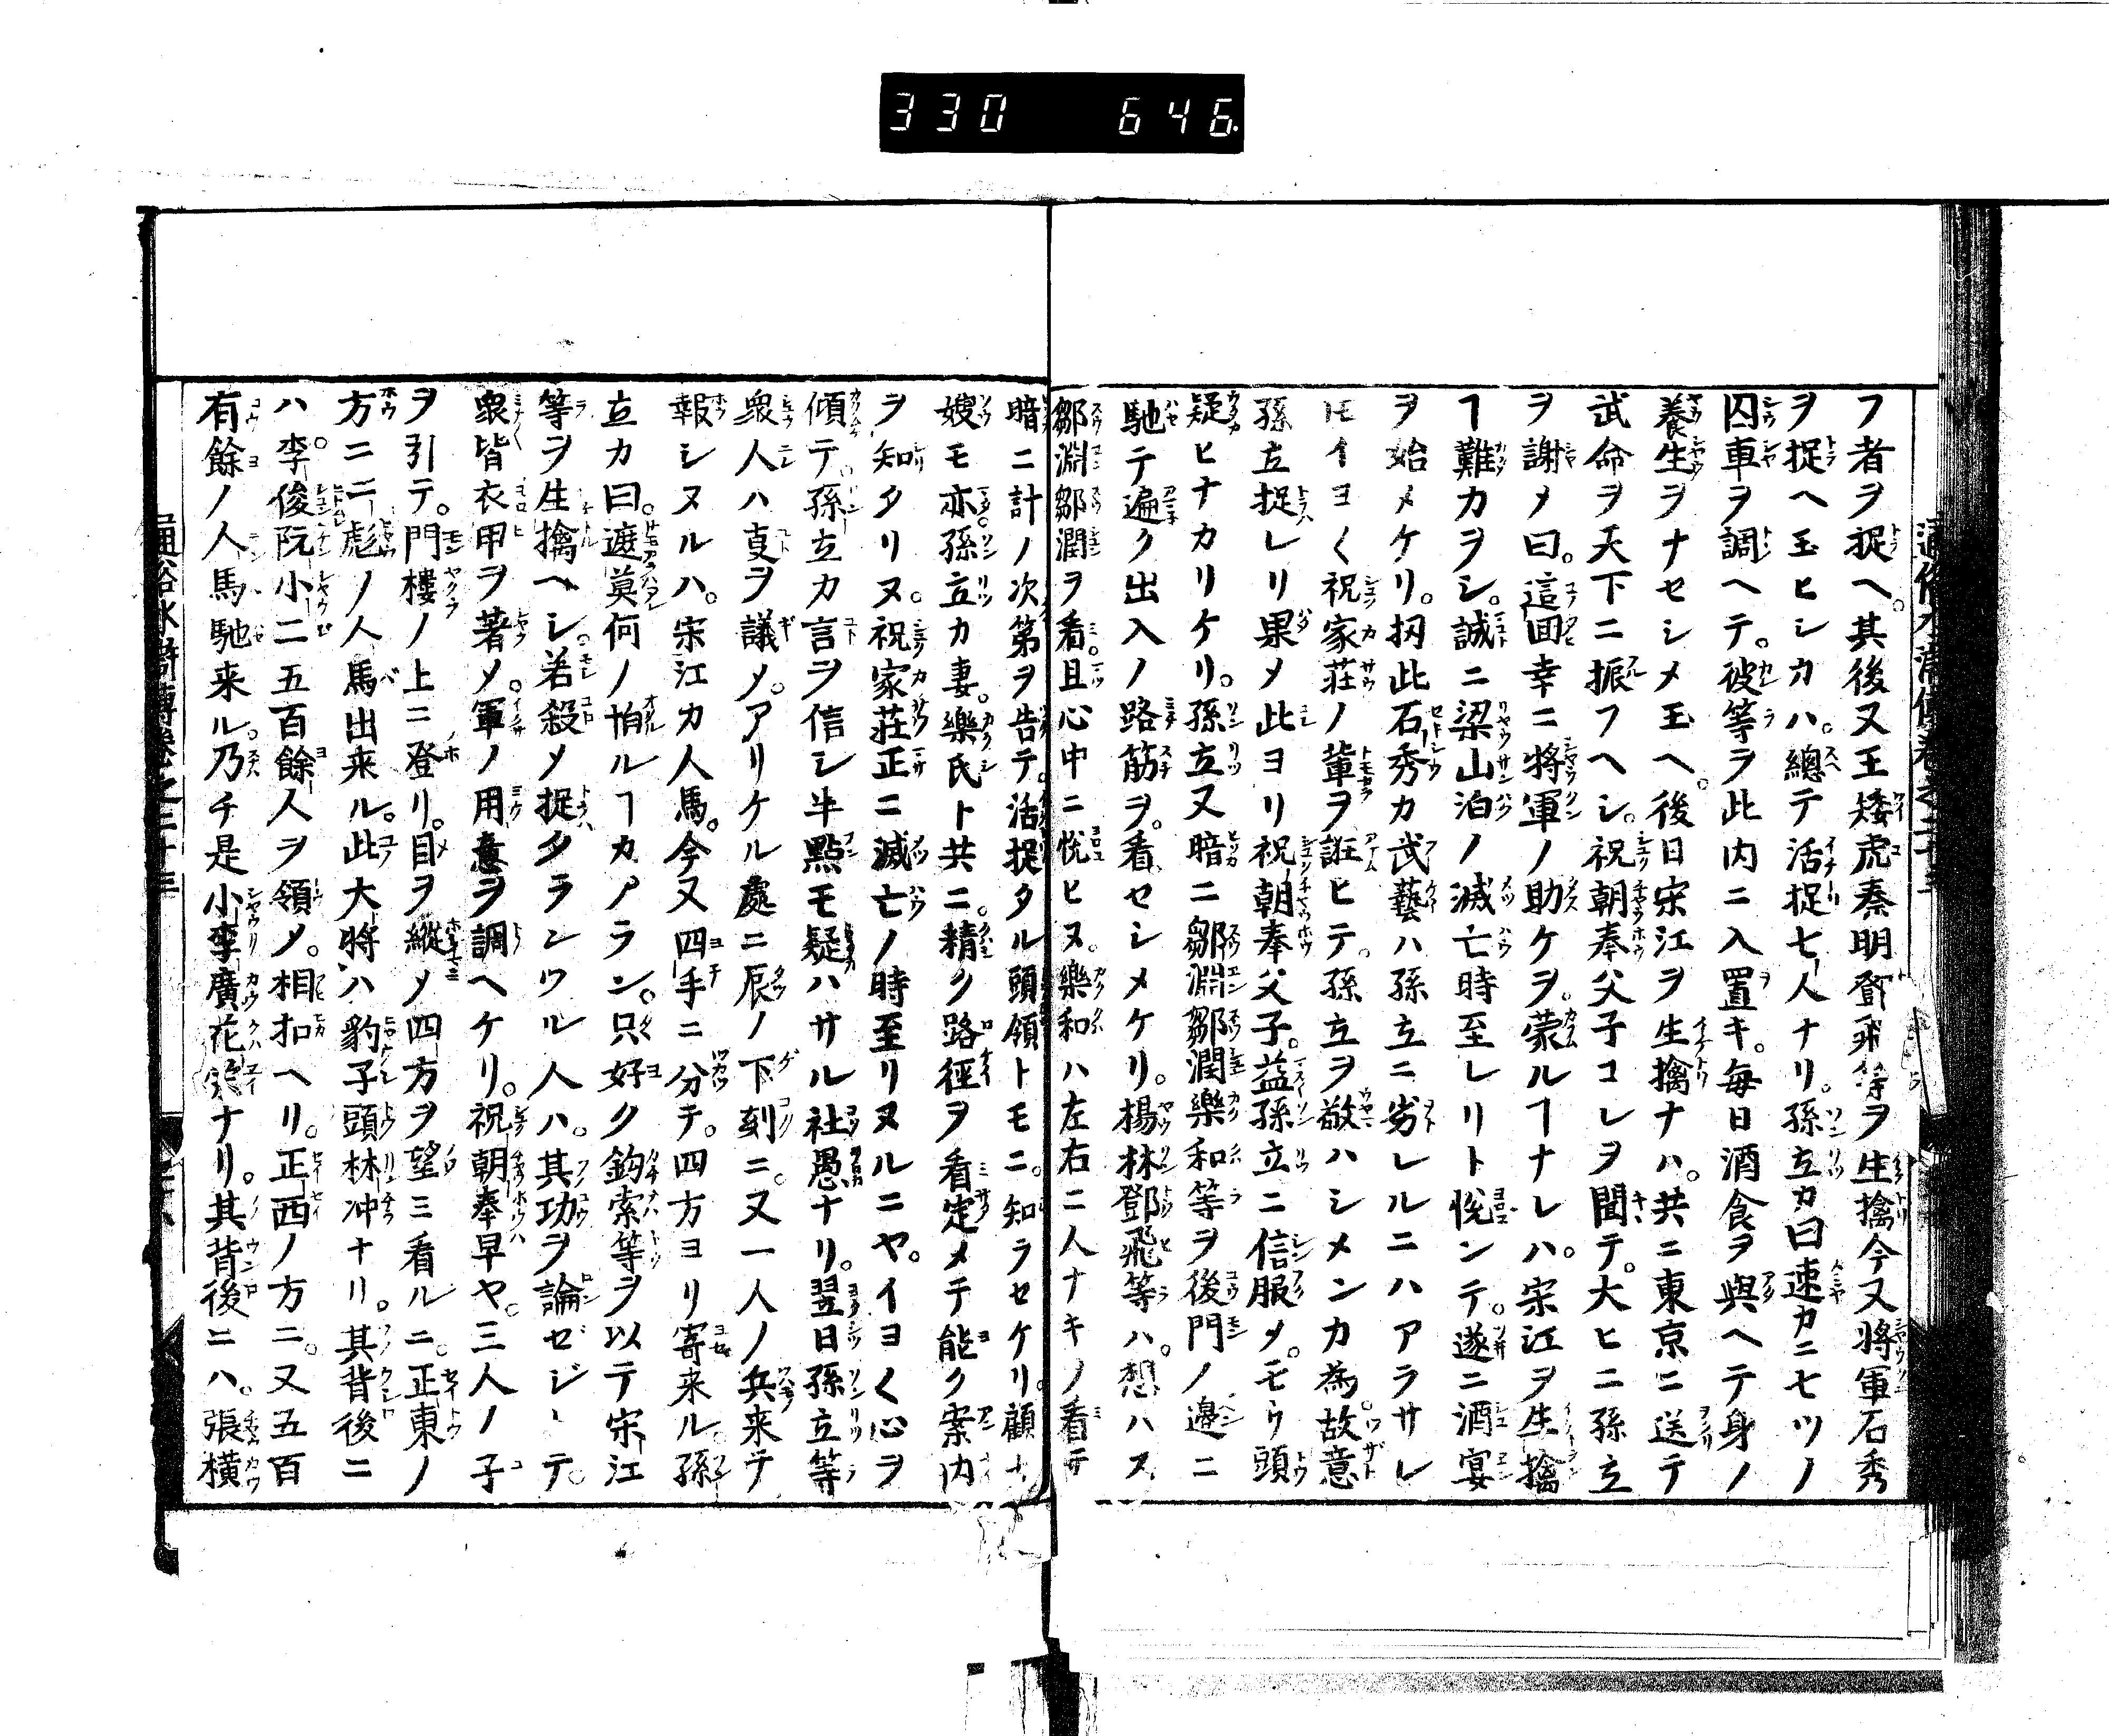 330 646.
フ者ヲ捉ヘ。其後又王矮虎秦明鄧飛等ヲ生擒今又將軍石秀
ヲ捉ヘ玉ヒシカハ。總テ活捉七人ナリ。孫立カ曰速カニ七ツノ
囚車ヲ調ヘテ。彼等ヲ此内ニ入置キ。毎日酒食ヲ與ヘテ身ノ
養生ヲナセシメ玉ヘ。後日宋江ヲ生擒ナハ。共ニ東京ニ送テ
武命ヲ天下ニ振フヘシ。祝朝奉父子コレヲ聞テ。大ヒニ孫立
ヲ謝メ曰。這回幸ニ將軍ノ助ケヲ。蒙ルヿナレハ。宋江ヲ生擒
ヿ難カヲシ。誠ニ梁山泊ノ滅亡時至レリト悦ンテ。遂ニ酒宴
ヲ始メケリ。扨此石秀カ武藝ハ孫立ニ劣レルニハアラサレ
𪜈イヨ〱祝家荘ノ輩ヲ誑ヒテ。孫立ヲ敬ハシメンカ為。故意
孫立捉レリ果メ此ヨリ祝朝奉父子。益孫立ニ信服メ。モウ頭
疑ヒナカリケリ。孫立又暗ニ鄒淵鄒潤樂和等ヲ後門ノ邉ニ
馳テ遍ク出入ノ路筋ヲ。看セシメケリ。楊林鄧飛等ハ。想ハス
鄒淵鄒潤ヲ看。且心中ニ悦ヒヌ。樂和ハ左右ニ人ナキノ看テ
暗ニ計ノ次第ヲ告テ。活捉タル頭領トモニ。知ラセケリ。顧
嫂モ亦孫立カ妻。樂氏ト共ニ。精ク路徑ヲ看定メテ能ク案内
ヲ知タリヌ。祝家荘正ニ滅亡ノ時至リヌルニヤ。イヨ〱心ヲ
傾テ。孫立カ言ヲ信シ半點モ疑ハサル社愚ナリ。翌日孫立等
衆人ハ叓ヲ議メ。アリケル處ニ辰ノ下刻ニ。又一人ノ兵来テ
報シヌルハ。宋江カ人馬。今又四手ニ分テ。四方ヨリ寄来ル。孫
立カ曰。遮莫何ノ怕ルヿカアラン。只好ク鈎索等ヲ以テ宋江
等ヲ生擒ヘシ。若殺メ捉タランワル人ハ。其功ヲ論ゼジーテ。
衆皆衣甲ヲ著メ。軍ノ用意ヲ調ヘケリ。祝朝奉早ヤ。三人ノ子
ヲ引テ。門樓ノ上ニ登リ。目ヲ縱メ四方ヲ望ミ看ルニ。正東ノ
方ニ一彪ノ人馬出来ル。此大將ハ豹子頭林冲ナリ。其背後ニ
ハ。李俊阮小二五百餘人ヲ領メ。相扣ヘリ。正西ノ方ニ。又五百
有餘ノ人馬馳来ル。乃チ是小李廣花榮ナリ。其背後ニハ。張横